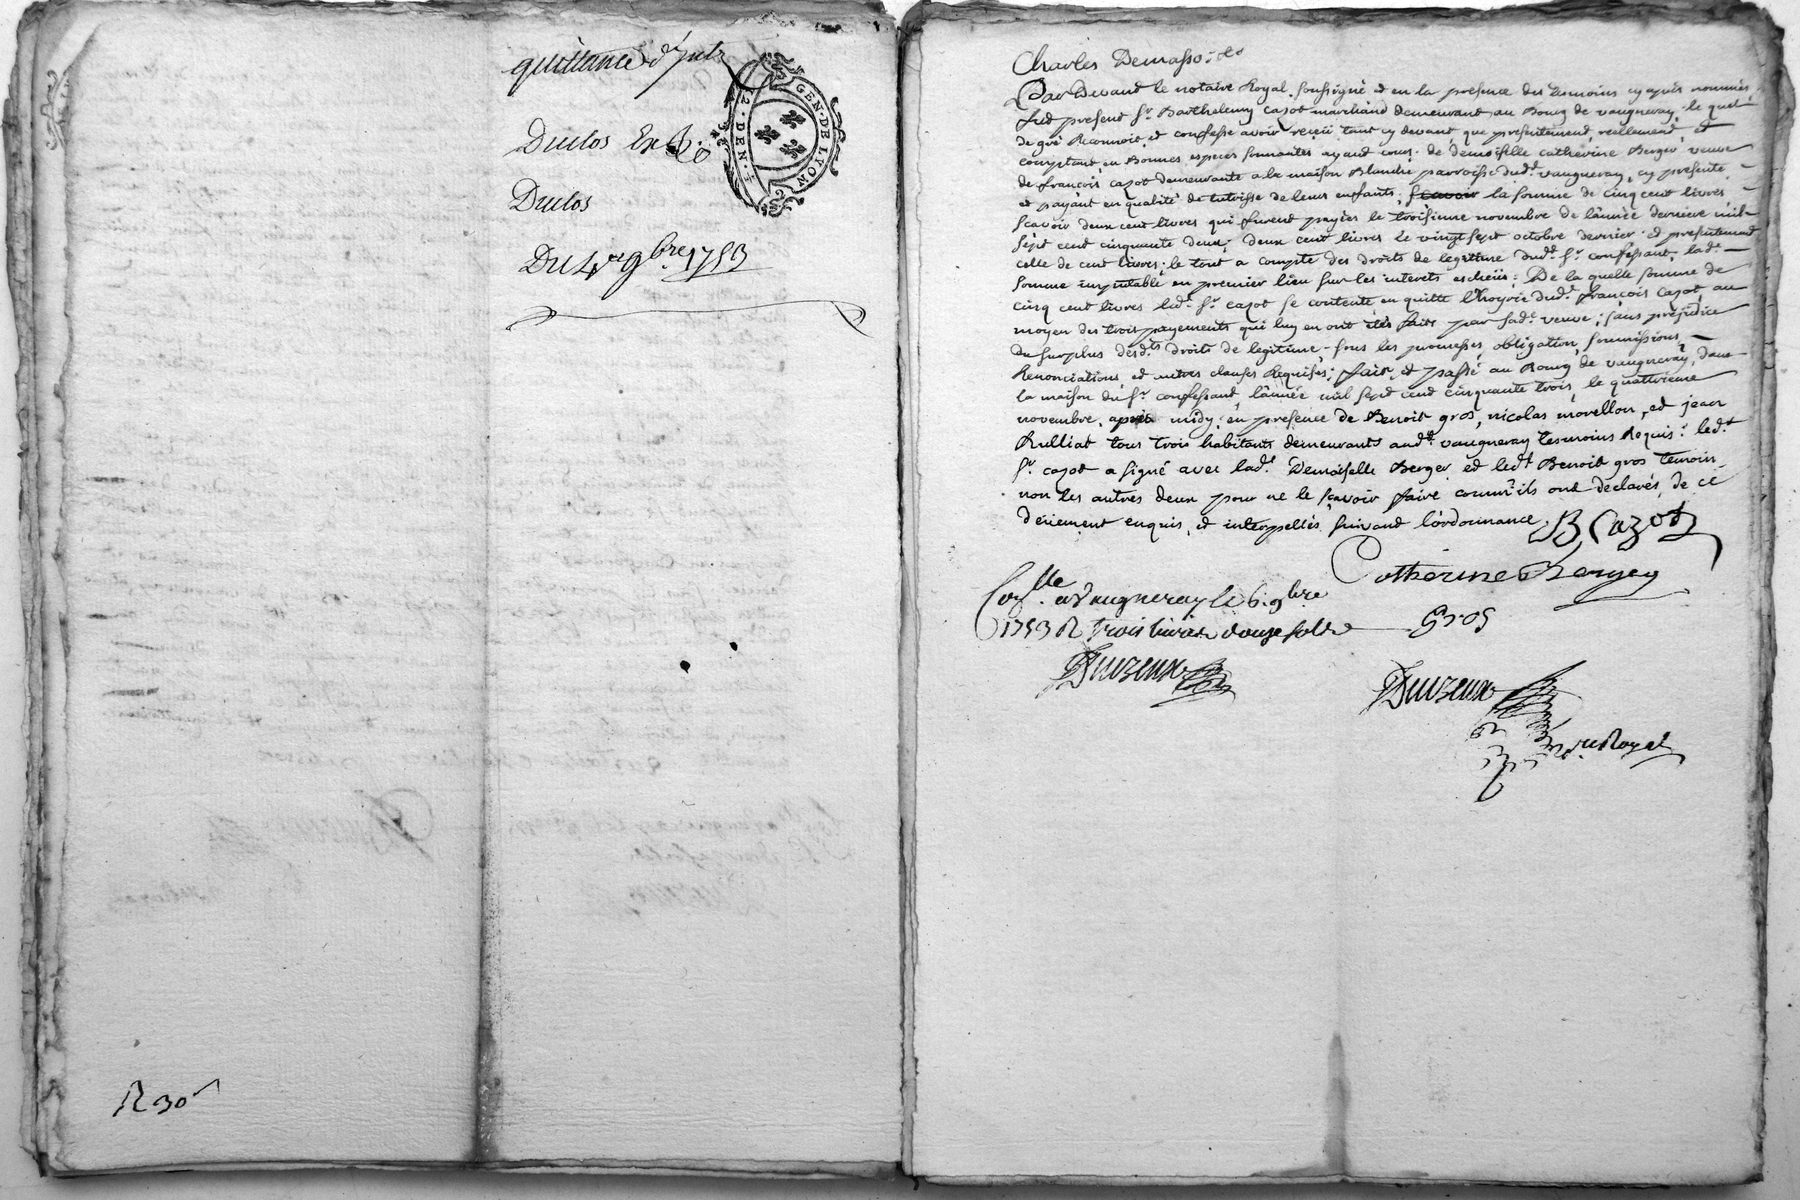 quittance d
Duclos
Duclos
Du 4e 9bre 1753
GEN. DE LYON
2. DEN.
R 30s
Charles Demasso
Par Devant le notaire Royal soussigné et en la presence des temoins cy apres nommés
fut present sr. Barthelemy cazot marchand demeurant au Bourg de vaugneray, le quel
de gré Reconnoit, et confesse avoir reçeü tant cy devant que presentement, reellement, et
comptant en Bonnes especes sonnantes ayant cours, de demoiselle catherine Berger veuve
de francois cazot demeurante a la maison Blanche parroisse dud.t vaugneray, cy presente
et payant en qualité de tutrisse de leurs enfants, scavoir la somme de cinq cent livres
scavoir deux cent livres qui furent payées le troisieme novembre de l'année derniere mil
sept cent cinquante deux; deux cent livres le vingt sept octobre dernier et presentement
celle de cent livres; le tout a compte des droits de legitime dud.t sr. confessant, lad.e
somme imputable en premier lieu sur les interets escheüs; De la quelle somme de
cinq cent livres led.t sr. cazot se contente, en quitte l'hoyrie dud.t françois cazot, au
moyen des trois payements qui luy en ont étés faits par lad.e veuve; sans préjudice
du surplus desd.ts droits de legitime - sous les promesses, obligation, soumissions,
Renonciations, et autres clauses Requises; fait, et passé au Bourg de vaugneray, dans
la maison du sr. confessant, l'année mil sept cent cinquante trois, le quattrieme
novembre, après midy, en presence de Benoit gros, nicolas morellon, et jean
Rulliat tous trois habitants demeurants aud.t vaugneray temoins Requis; led.t
sr. cazot a signé avec lad.e Demoiselle Berger et led.t Benoit gros temoin
non les autres deux pour ne le scavoir faire comm'ils ont declarés, de ce
deüement enquis, et interpellés suivant l'ordonnance. B Cazot
Catherine Berger
Con.lle a Vaugneray le 6. 9bre
1753 R trois livres douze sols Gros
Duvzeux
Duvzeux
n.re Royal